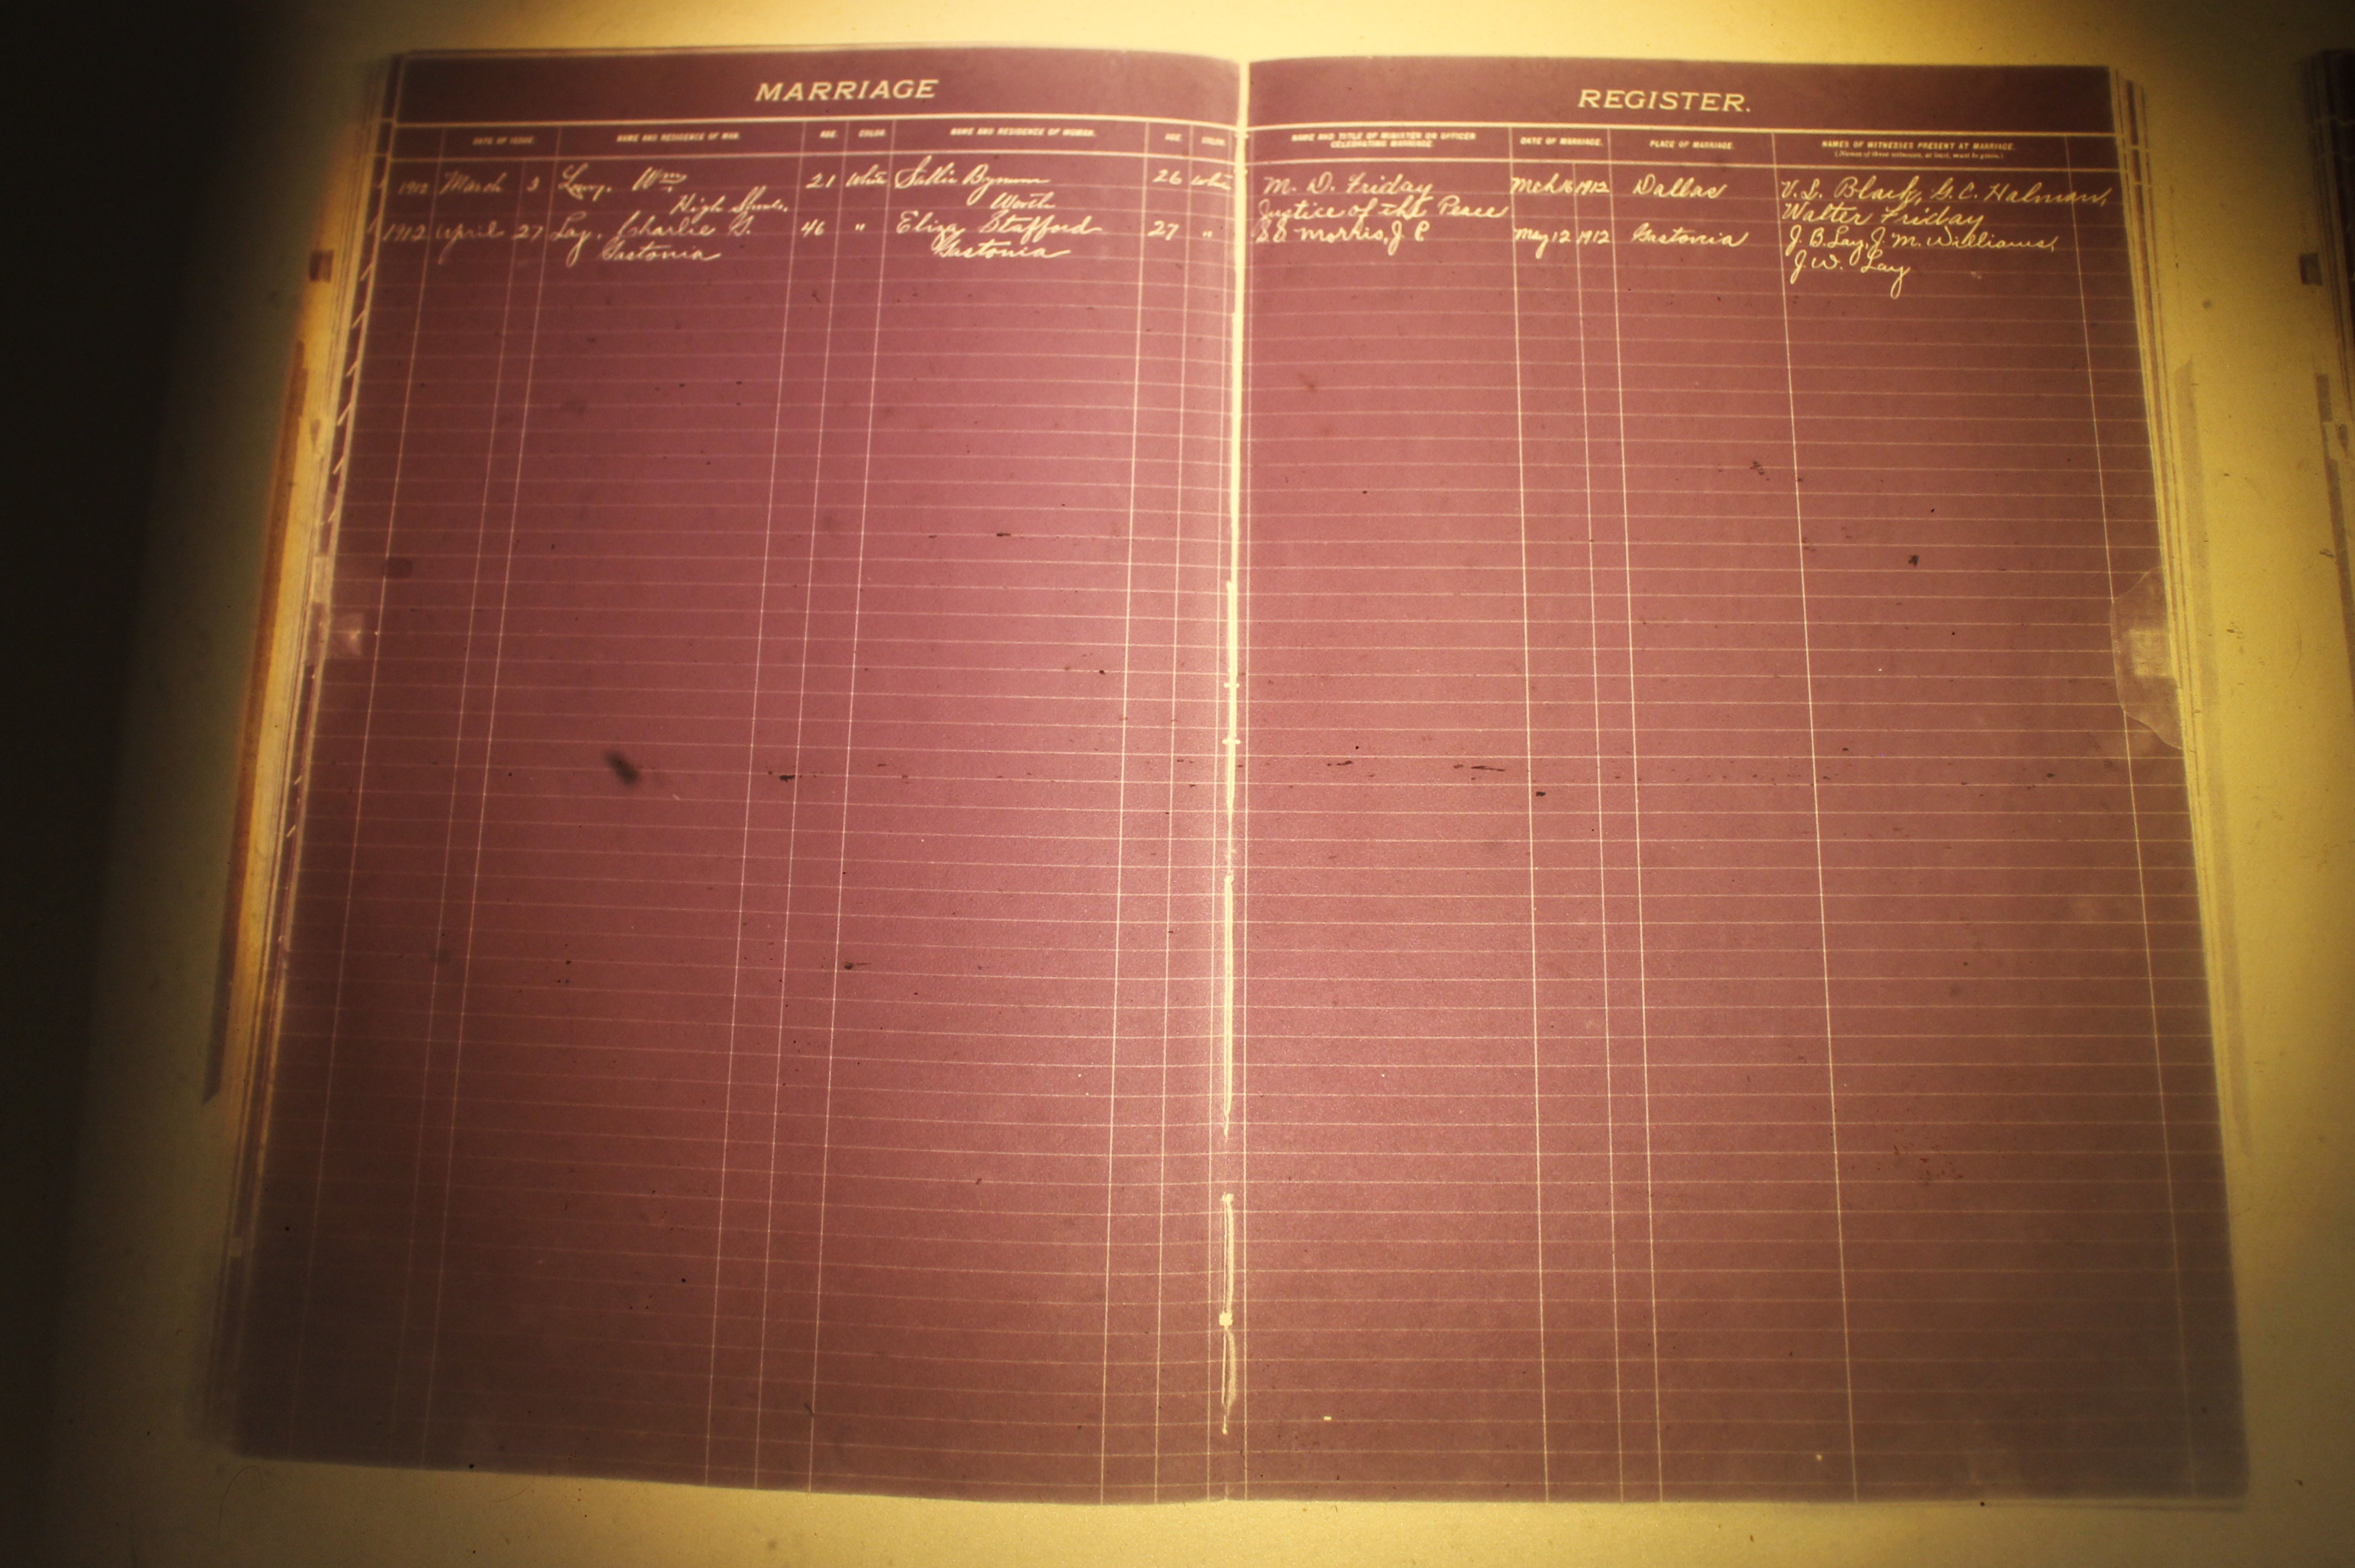 MARRIAGE REGISTER.
DATE OF ISSUE. NAME AND RESIDENCE OF MAN. AGE. COLOR. NAME AND RESIDENCE OF WOMAN. AGE. COLOR. NAME AND TITLE OF MINISTER OR OFFICER CELEBRATING MARRIAGE. DATE OF MARRIAGE. PLACE OF MARRIAGE. NAMES OF WITNESSES PRESENT AT MARRIAGE.
(Names of three witnesses, at least, must be given.)
1912 March 3 Wm. 21 White Sallie Bynum 26 White M. D. Friday Mch 16 1912 Dallas V. L. Black, G. C. Halman,
High Shoals. Worth Justice of the Peace Walter Friday
1912 April 27 Lay, Charlie G. 46 " Eliza Stafford 27 " S S Morris, J. P. May 12 1912 Gastonia J. B. Lay, J. M. Williams,
Gastonia Gastonia J. W. Lay